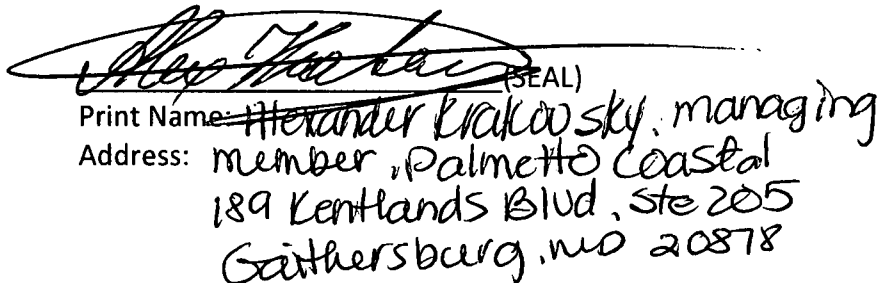 (SEAL)
Print Name: Alexander Krakovsky, managing
Address: member, Palmetto Coastal
189 Kentlands Blvd, Ste 205
Gaithersburg, MD 20878